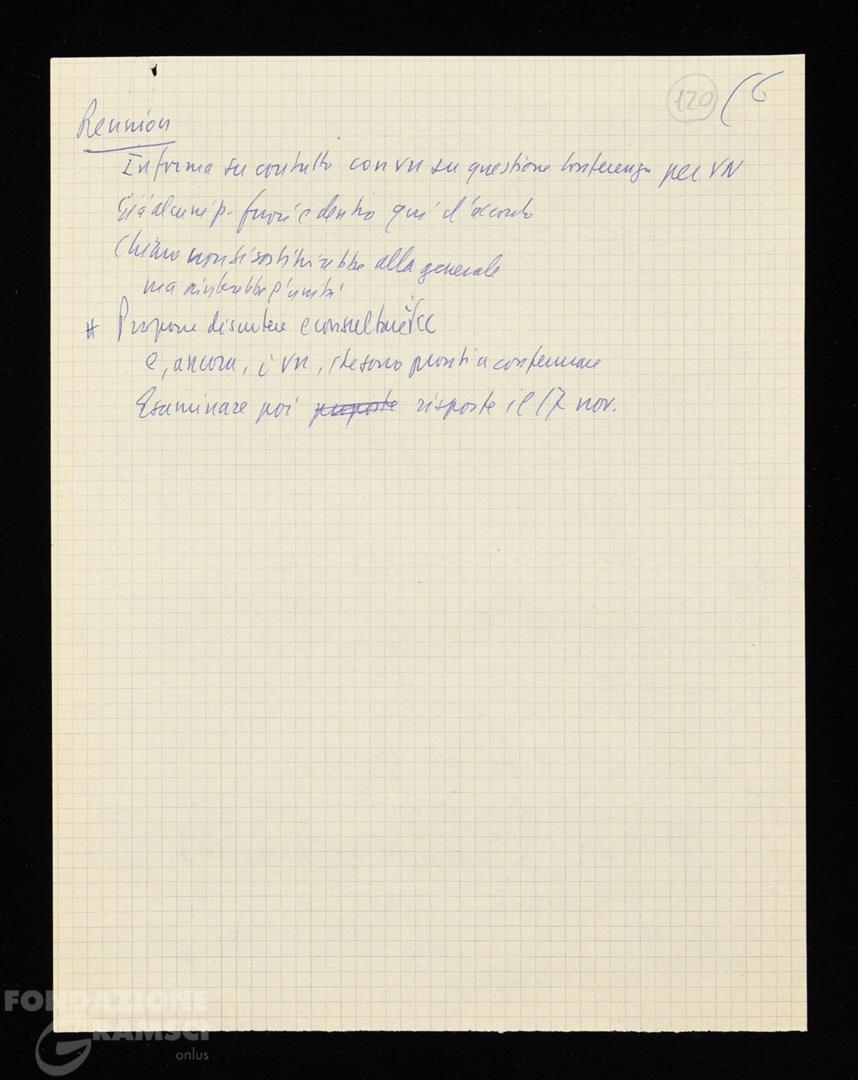 120
16
Reunion
Informa su contatto con vn su questione conferenza per VN
Già alcuni p. fuori e dentro qui d'accordo
Chiaro non si sostituirebbe alla generale
ma
# Propone discutere e consultare i CC
e, ancora, i vn, che sono pronti a confermare
Esaminare poi proposte risposte il 17 nov.
FONDAZIONE
GRAMSCI
onlus